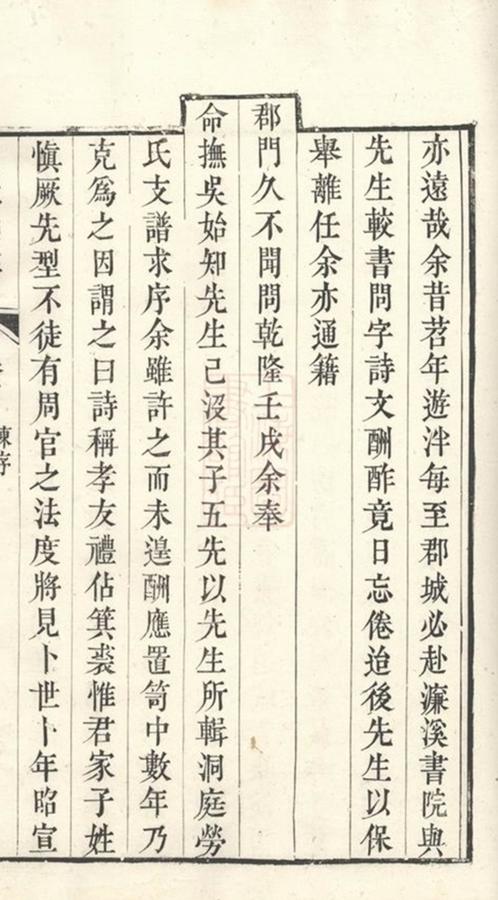 亦遠哉余昔苕年遊泮每至郡城必赴濂溪書院與
先生較書問字詩文酬酢竟日忘倦迨後先生以保
舉離任余亦通籍
郡門久不聞問乾隆壬戌余奉
命撫吳始知先生已沒其子五先以先生所輯洞庭勞
氏支譜求序余雖許之而未遑酬應置笥中數年乃
克為之因謂之曰詩稱孝友禮佔箕裘惟君家子姓
慎厥先型不徒有周官之法度將見卜世卜年昭宣
陳序